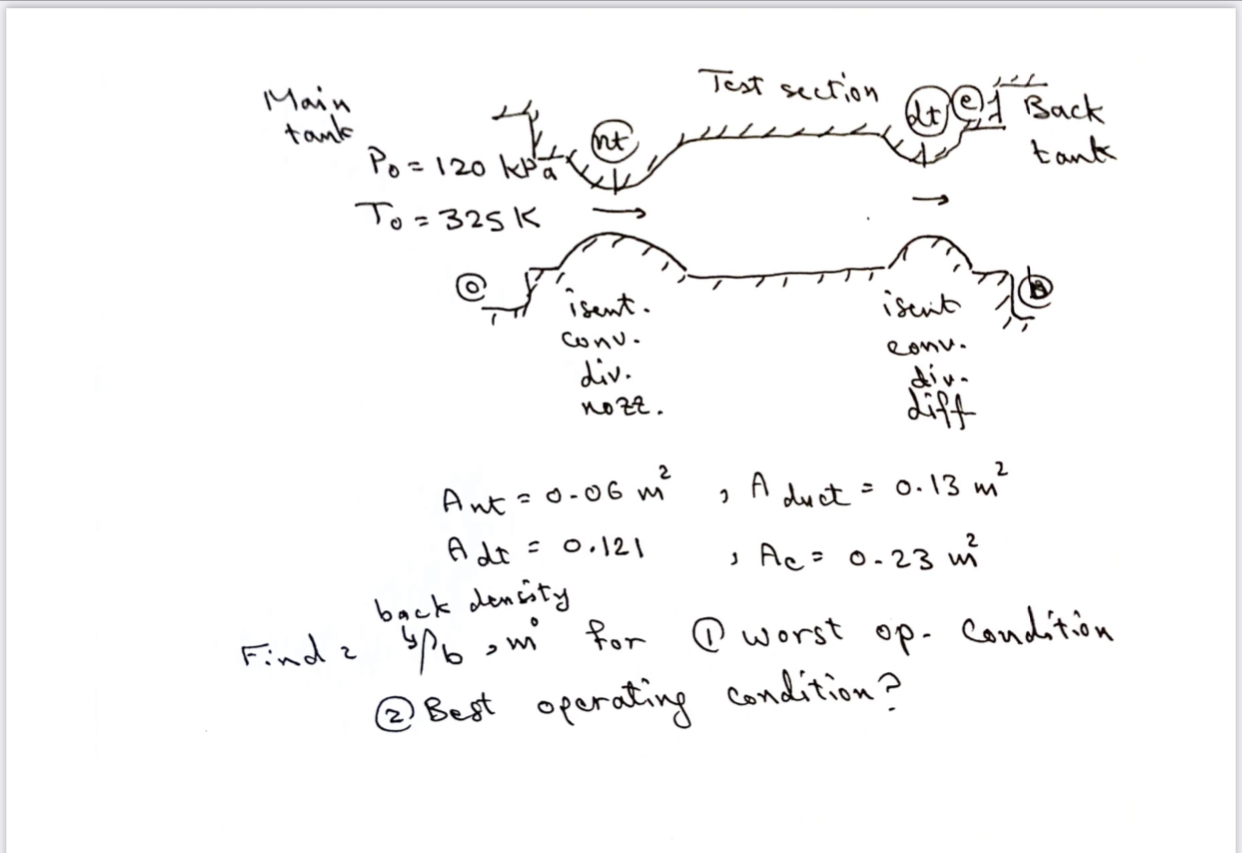 Main tank
Test section
P₀ = 120 kPa
T₀ = 325 K
nt
dt
e
Back tank
o
b
isent.
conv.
div.
nozz.
isent
conv.
div.
diff
Ant = 0.06 m² , A duct = 0.13 m²
Adt = 0.121 , Ae = 0.23 m²
back density
Find : ρb , ṁ for ① worst op. condition
② Best operating condition?